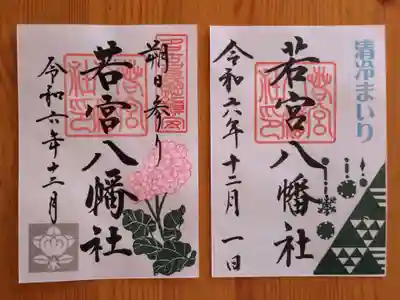 朔日参り
若宮八幡社
令和六年十二月
清冷まいり
若宮八幡社
令和六年十二月一日